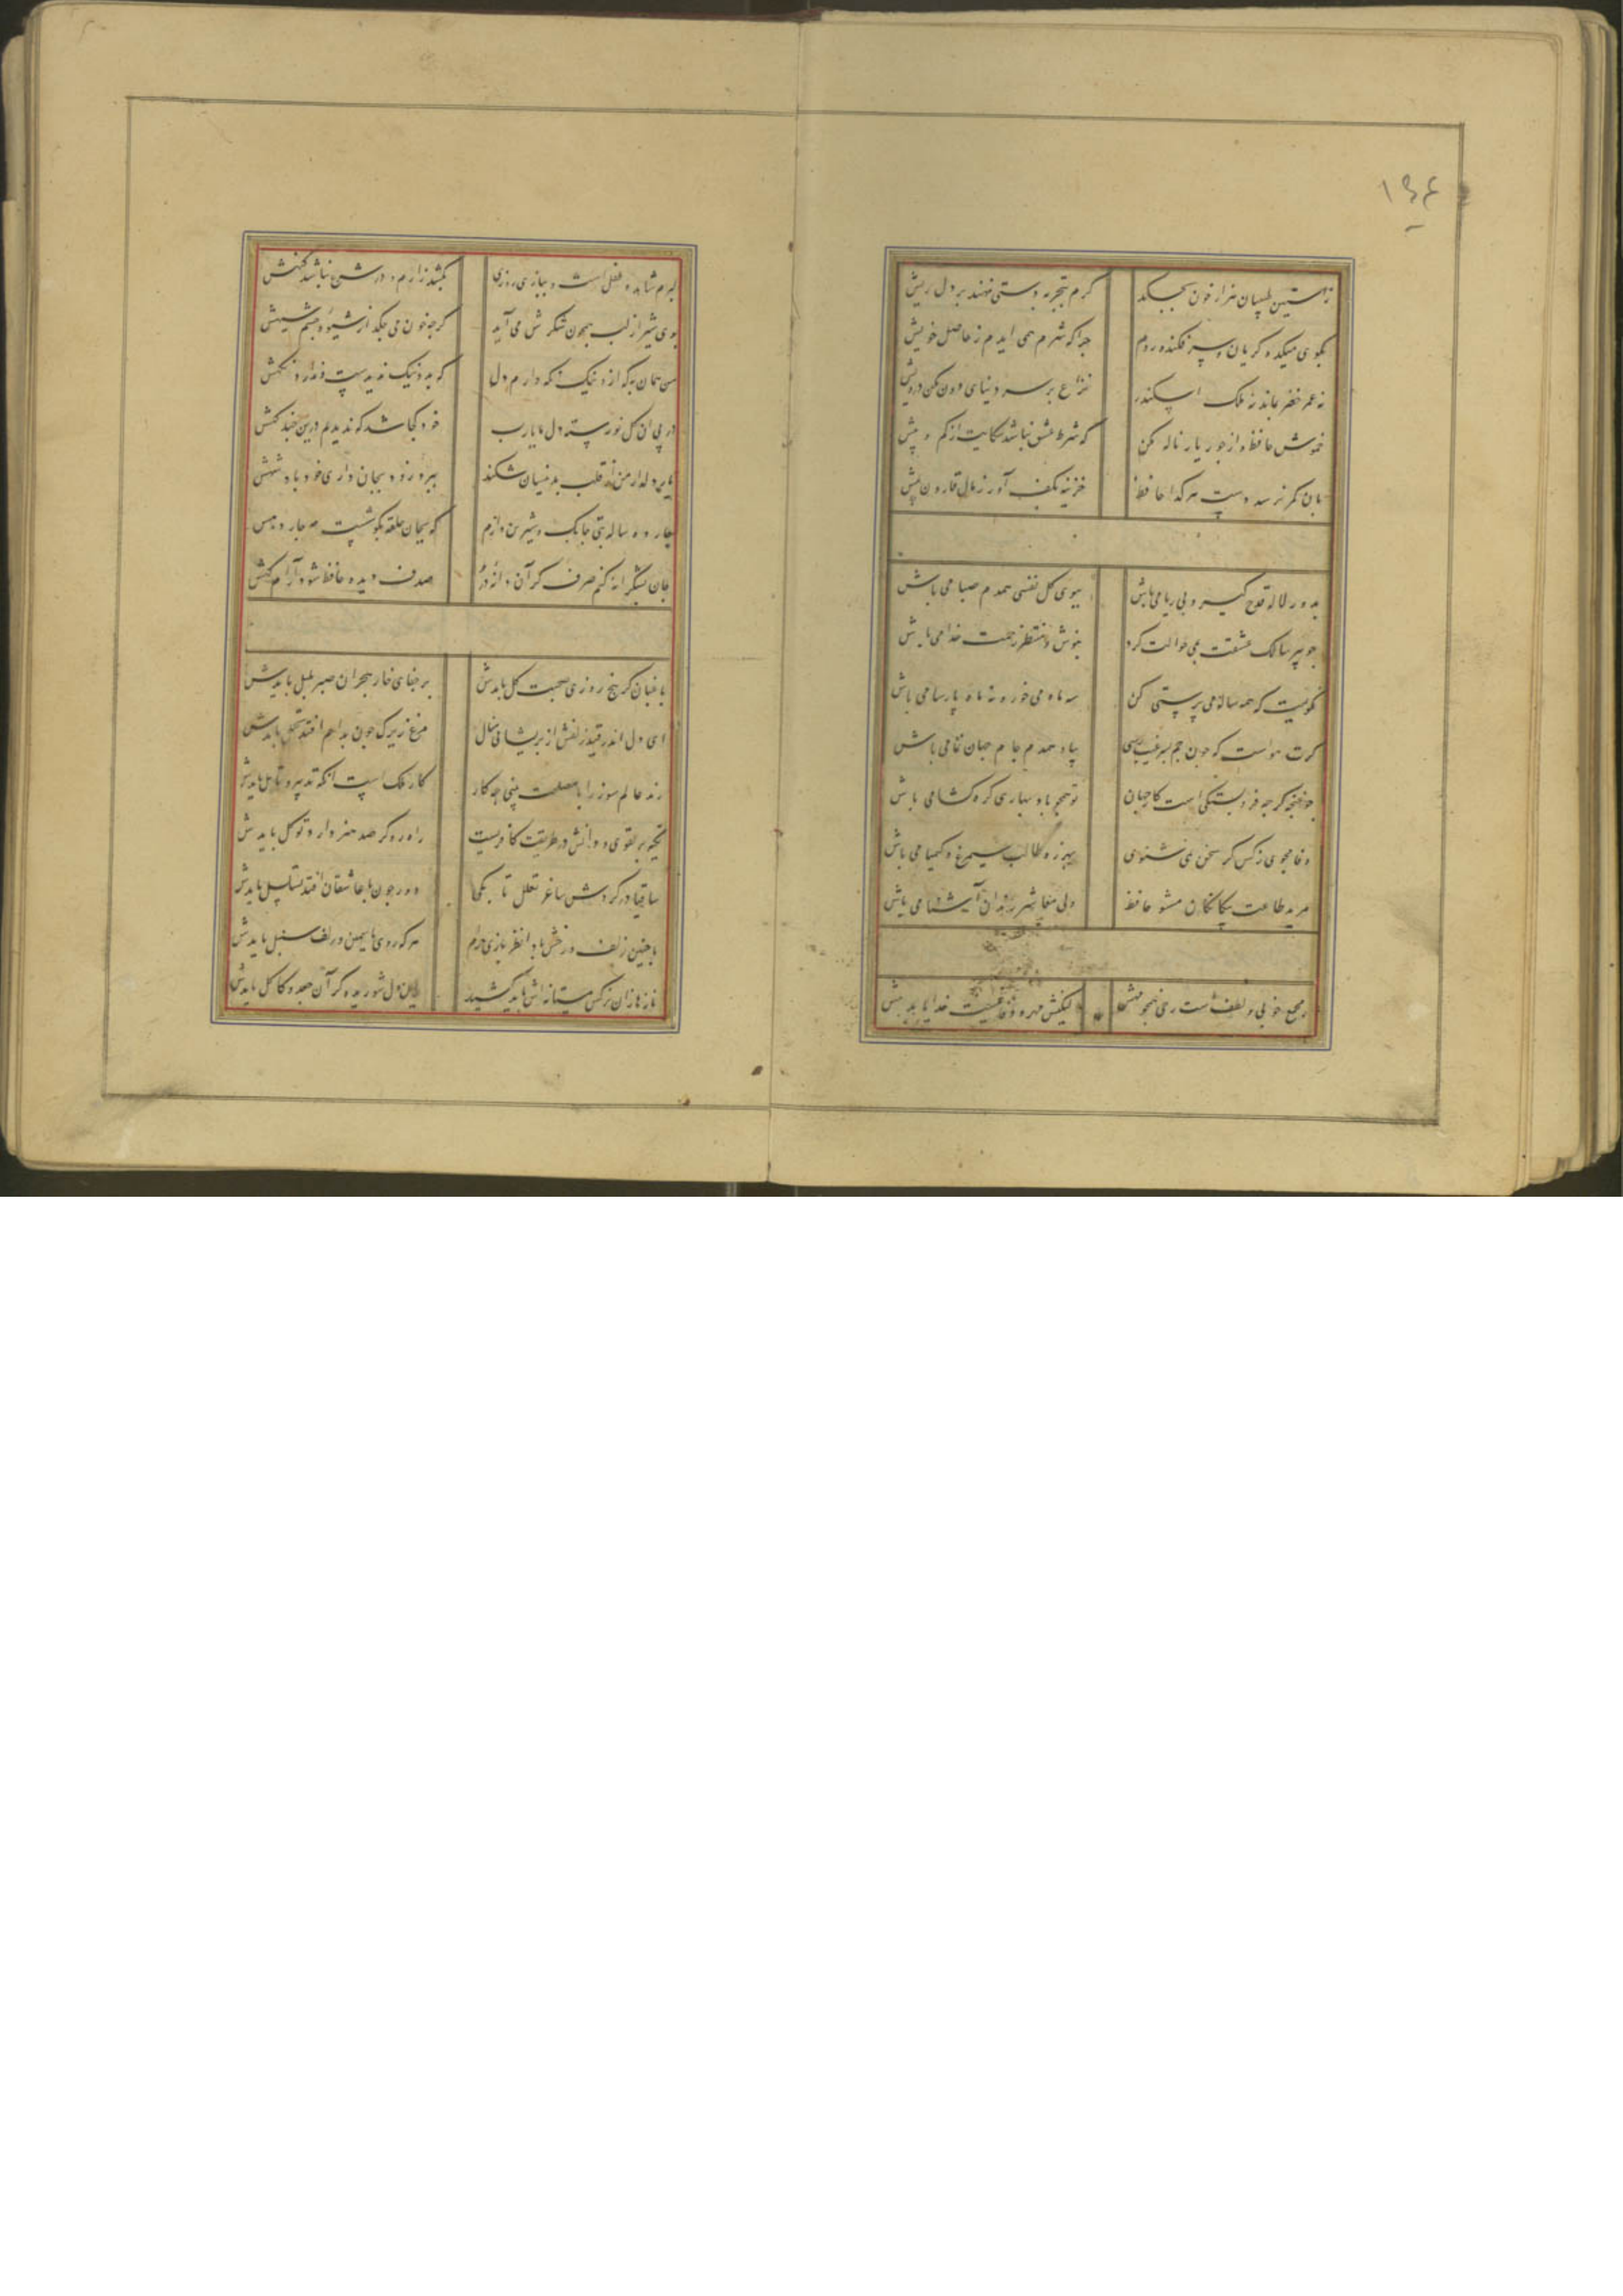 ۱۹۴
ز آستین طبیبان هزار خون بچکد کرم بتجربه دستی نهند بر دل ریش
بکوی میکده کریان و سر فکنده روم چرا که شرم همی ایدم ز حاصل خویش
نه عمر خضر بماند نه ملک اسکندر نزاع بر سر دنیای دون مکن درویش
خموش حافظ و از جور یار ناله مکن که شرط عشق نباشد شکایت از کم و بیش
بان کمر نرسد دست هر کدا حافظ خزینه بکف آور ز مال قارون بیش
بدور لاله قدح گیر و بی ریا می باش ببوی کل نفسی همدم صبا می باش
چو پیر سالک عشقت بمی حوالت کرد بنوش و منتظر رحمت خدا می باش
نکویمت که همه ساله می پرستی کن سه ماه می خور و نه ماه پارسا می باش
کرت هواست که چون جم بسر غیب رسی بیا و همدم جام جهان نما می باش
چو غنچه کرچه فروبستکی است کار جهان تو همچو باد بهاری کره کشا می باش
وفا مجوی ز کس کر سخن نمی شنوی بهرزه طالب سیمرغ و کیمیا می باش
مرید طاعت بیکانکان مشو حافظ ولی معاشر رندان آشنا می باش
مجمع خوبی و لطف است رخ همچو مهش لیکنش مهر و وفا نیست خدایا بدهش
دلبرم شاهد و طفل است و ببازی روزی بکشد زارم و در شرع نباشد کنهش
بوی شیر از لب همچون شکرش می آید کرچه خون می چکد از شیوه چشم سیهش
من همان به که ازو نیک نکه دارم دل که بد و نیک ندیدست و ندارد نکهش
در پی ان کل نورسته دل ما یارب خود کجا شد که ندیدیم درین چند کهش
یار دلدار من ار قلب بدینسان شکند ببرد زود بجانداری خود پادشهش
چارده ساله بتی چابک و شیرین دارم که بجان حلقه بکوشست مه چاردهش
جان بشکرانه کنم صرف کر آن دانه در صدف دیده حافظ شود آرامکهش
باغبان کر پنج روزی صحبت کل بایدش بر جفای خار هجران صبر بلبل بایدش
ای دل اندر قید زلفش از پریشانی منال مرغ زیرک چون بدام افتد تحمل بایدش
رند عالم سوز را با مصلحت بینی چه کار کار ملک است انکه تدبیر و تامل بایدش
تکیه بر تقوی و دانش در طریقت کافریست راه رو کر صد هنر دارد توکل بایدش
ساقیا در کردش ساغر تعلل تا بکی دور چون با عاشقان افتد تسلسل بایدش
با چنین زلف و رخش بادا نظر بازی حرام هر که روی یاسمین و زلف سنبل بایدش
نازها زان نرکس مستانه اش باید کشید این دل شوریده کر آن جعد و کاکل بایدش